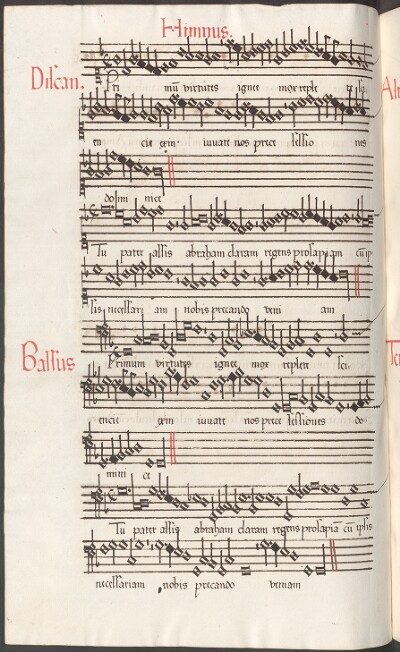 Himnus.
Discan.
mū virtutes ignee mox replet
en cie exin iuuate nos prece sessio nis
domi nice
Tu pater assis abraham claram regens prosapiam cū ip
sis necessari am nobis precando veni am
Bassus
Primum virtutes ignee mox replett sci-
encie exin iuuate nos prece sessiones do-
mini ce
Tu pater assis abraham claram regens prosapiā cū ipsis
necessariam nobis precando veniam